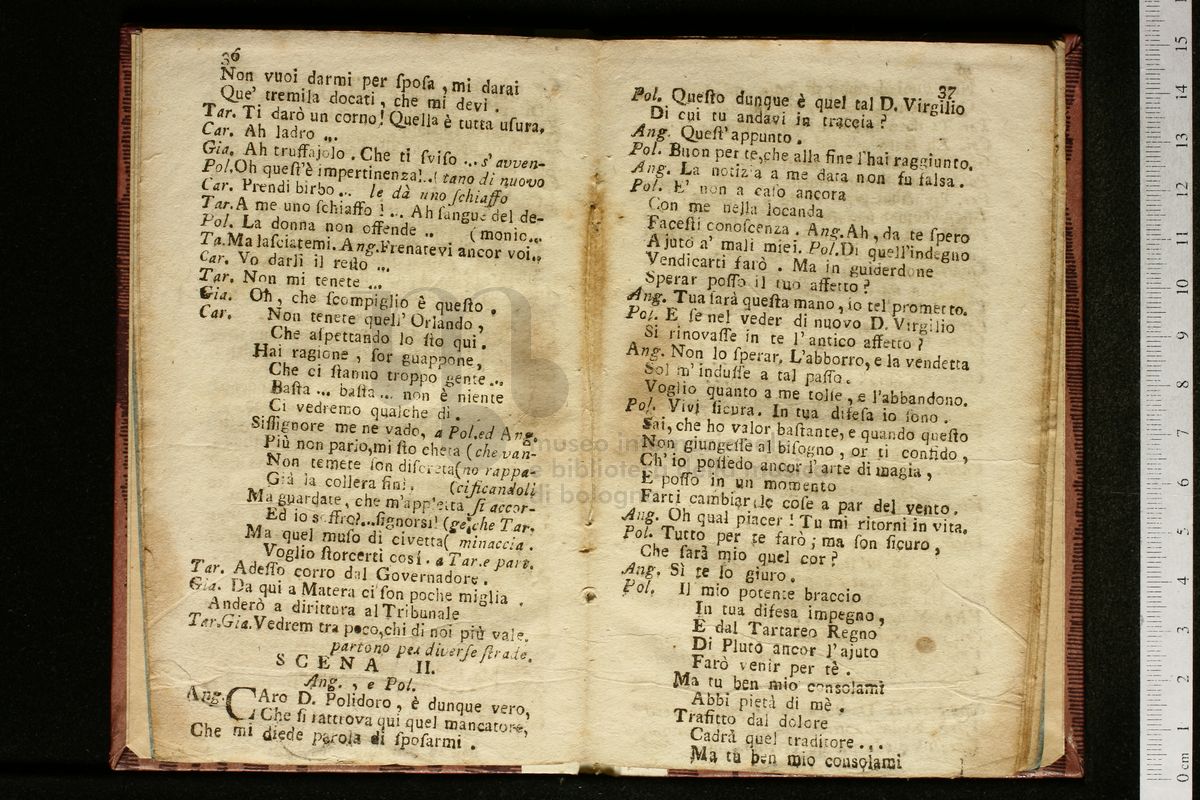 36
Non vuoi darmi per ſpoſa, mi darai
Que' tremila docati, che mi devi.
Tar. Ti darò un corno! Quella è tutta uſura.
Car. Ah ladro ...
Gia. Ah truffajolo. Che ti ſviſo ... s'avven-
Pol. Oh queſt'è impertinenza!..( tano di nuovo
Car. Prendi birbo... le dà uno ſchiaffo
Tar. A me uno ſchiaffo! ... Ah ſangue del de-
Pol. La donna non offende .. (monio...
Ta. Ma laſciatemi. Ang. Frenatevi ancor voi..
Car. Vo darli il reſto ...
Tar. Non mi tenete ...
Gia. Oh, che ſcompiglio è queſto.
Car. Non tenete quell' Orlando,
Che aſpettando lo ſto qui.
Hai ragione, ſor guappone,
Che ci ſtanno troppo gente...
Baſta ... baſta ... non è niente
Ci vedremo qualche di.
Siſſignore me ne vado, a Pol. ed Ang.
Più non parlo, mi ſto cheta (che van-
Non temete ſon diſcreta (no rappa-
Già la collera finì. (cificandoli
Ma guardate, che m'appietta ſi accor-
Ed io soffro?...ſignorsì! (ge, che Tar.
Ma quel muſo di civetta ( minaccia.
Voglio ſtorcerti così. a Tar. e part.
Tar. Adeſſo corro dal Governadore.
Gia. Da qui a Matera ci ſon poche miglia.
Anderò a dirittura al Tribunale
Tar. Gia. Vedrem tra poco, chi di noi più vale.
partono per diverſe ſtrade.
SCENA II.
Ang., e Pol.
Ang. CAro D. Polidoro, è dunque vero,
Che ſi rattrova qui quel mancatore,
Che mi diede parola di ſpoſarmi.
37
Pol. Queſto dunque è quel tal D. Virgilio
Di cui tu andavi in traccia?
Ang. Queſt'appunto.
Pol. Buon per te, che alla fine l'hai raggiunto.
Ang. La notizia a me data non fu falsa.
Pol. E' non a caſo ancora
Con me nella locanda
Faceſti conoſcenza. Ang. Ah, da te ſpero
Ajuto a' mali miei. Pol. Di quell'indegno
Vendicarti farò. Ma in guiderdone
Sperar poſſo il tuo affetto?
Ang. Tua ſarà queſta mano, io tel prometto.
Pol. E ſe nel veder di nuovo D. Virgilio
Si rinovaſſe in te l'antico affetto?
Ang. Non lo ſperar. L'abborro, e la vendetta
Sol m'induſſe a tal paſſo.
Voglio quanto a me tolſe, e l'abbandono.
Pol. Vivi ſicura. In tua difeſa io ſono.
Sai, che ho valor baſtante, e quando queſto
Non giungeſſe al biſogno, or ti confido,
Ch'io poſſedo ancor l'arte di magia,
E poſſo in un momento
Farti cambiar le coſe a par del vento.
Ang. Oh qual piacer! Tu mi ritorni in vita.
Pol. Tutto per te farò; ma ſon ſicuro,
Che ſarà mio quel cor?
Ang. Sì te lo giuro.
Pol. Il mio potente braccio
In tua difesa impegno,
E dal Tartareo Regno
Di Pluto ancor l'ajuto
Farò venir per tè.
Ma tu ben mio consolami
Abbi pietà di mè.
Trafitto dal dolore
Cadrà quel traditore...
Ma tu ben mio consolami